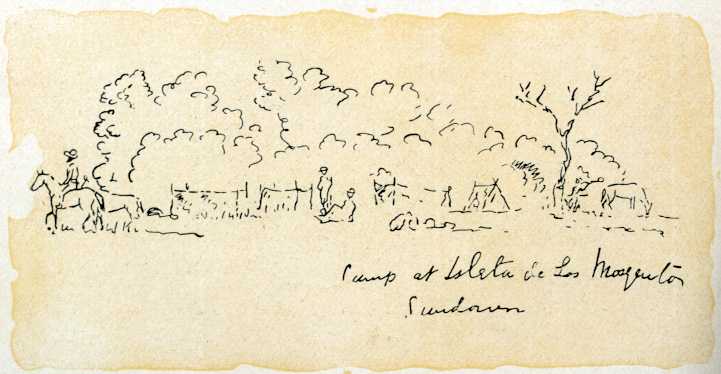 Camp at Isleta de Los Mosquitos
Sundown